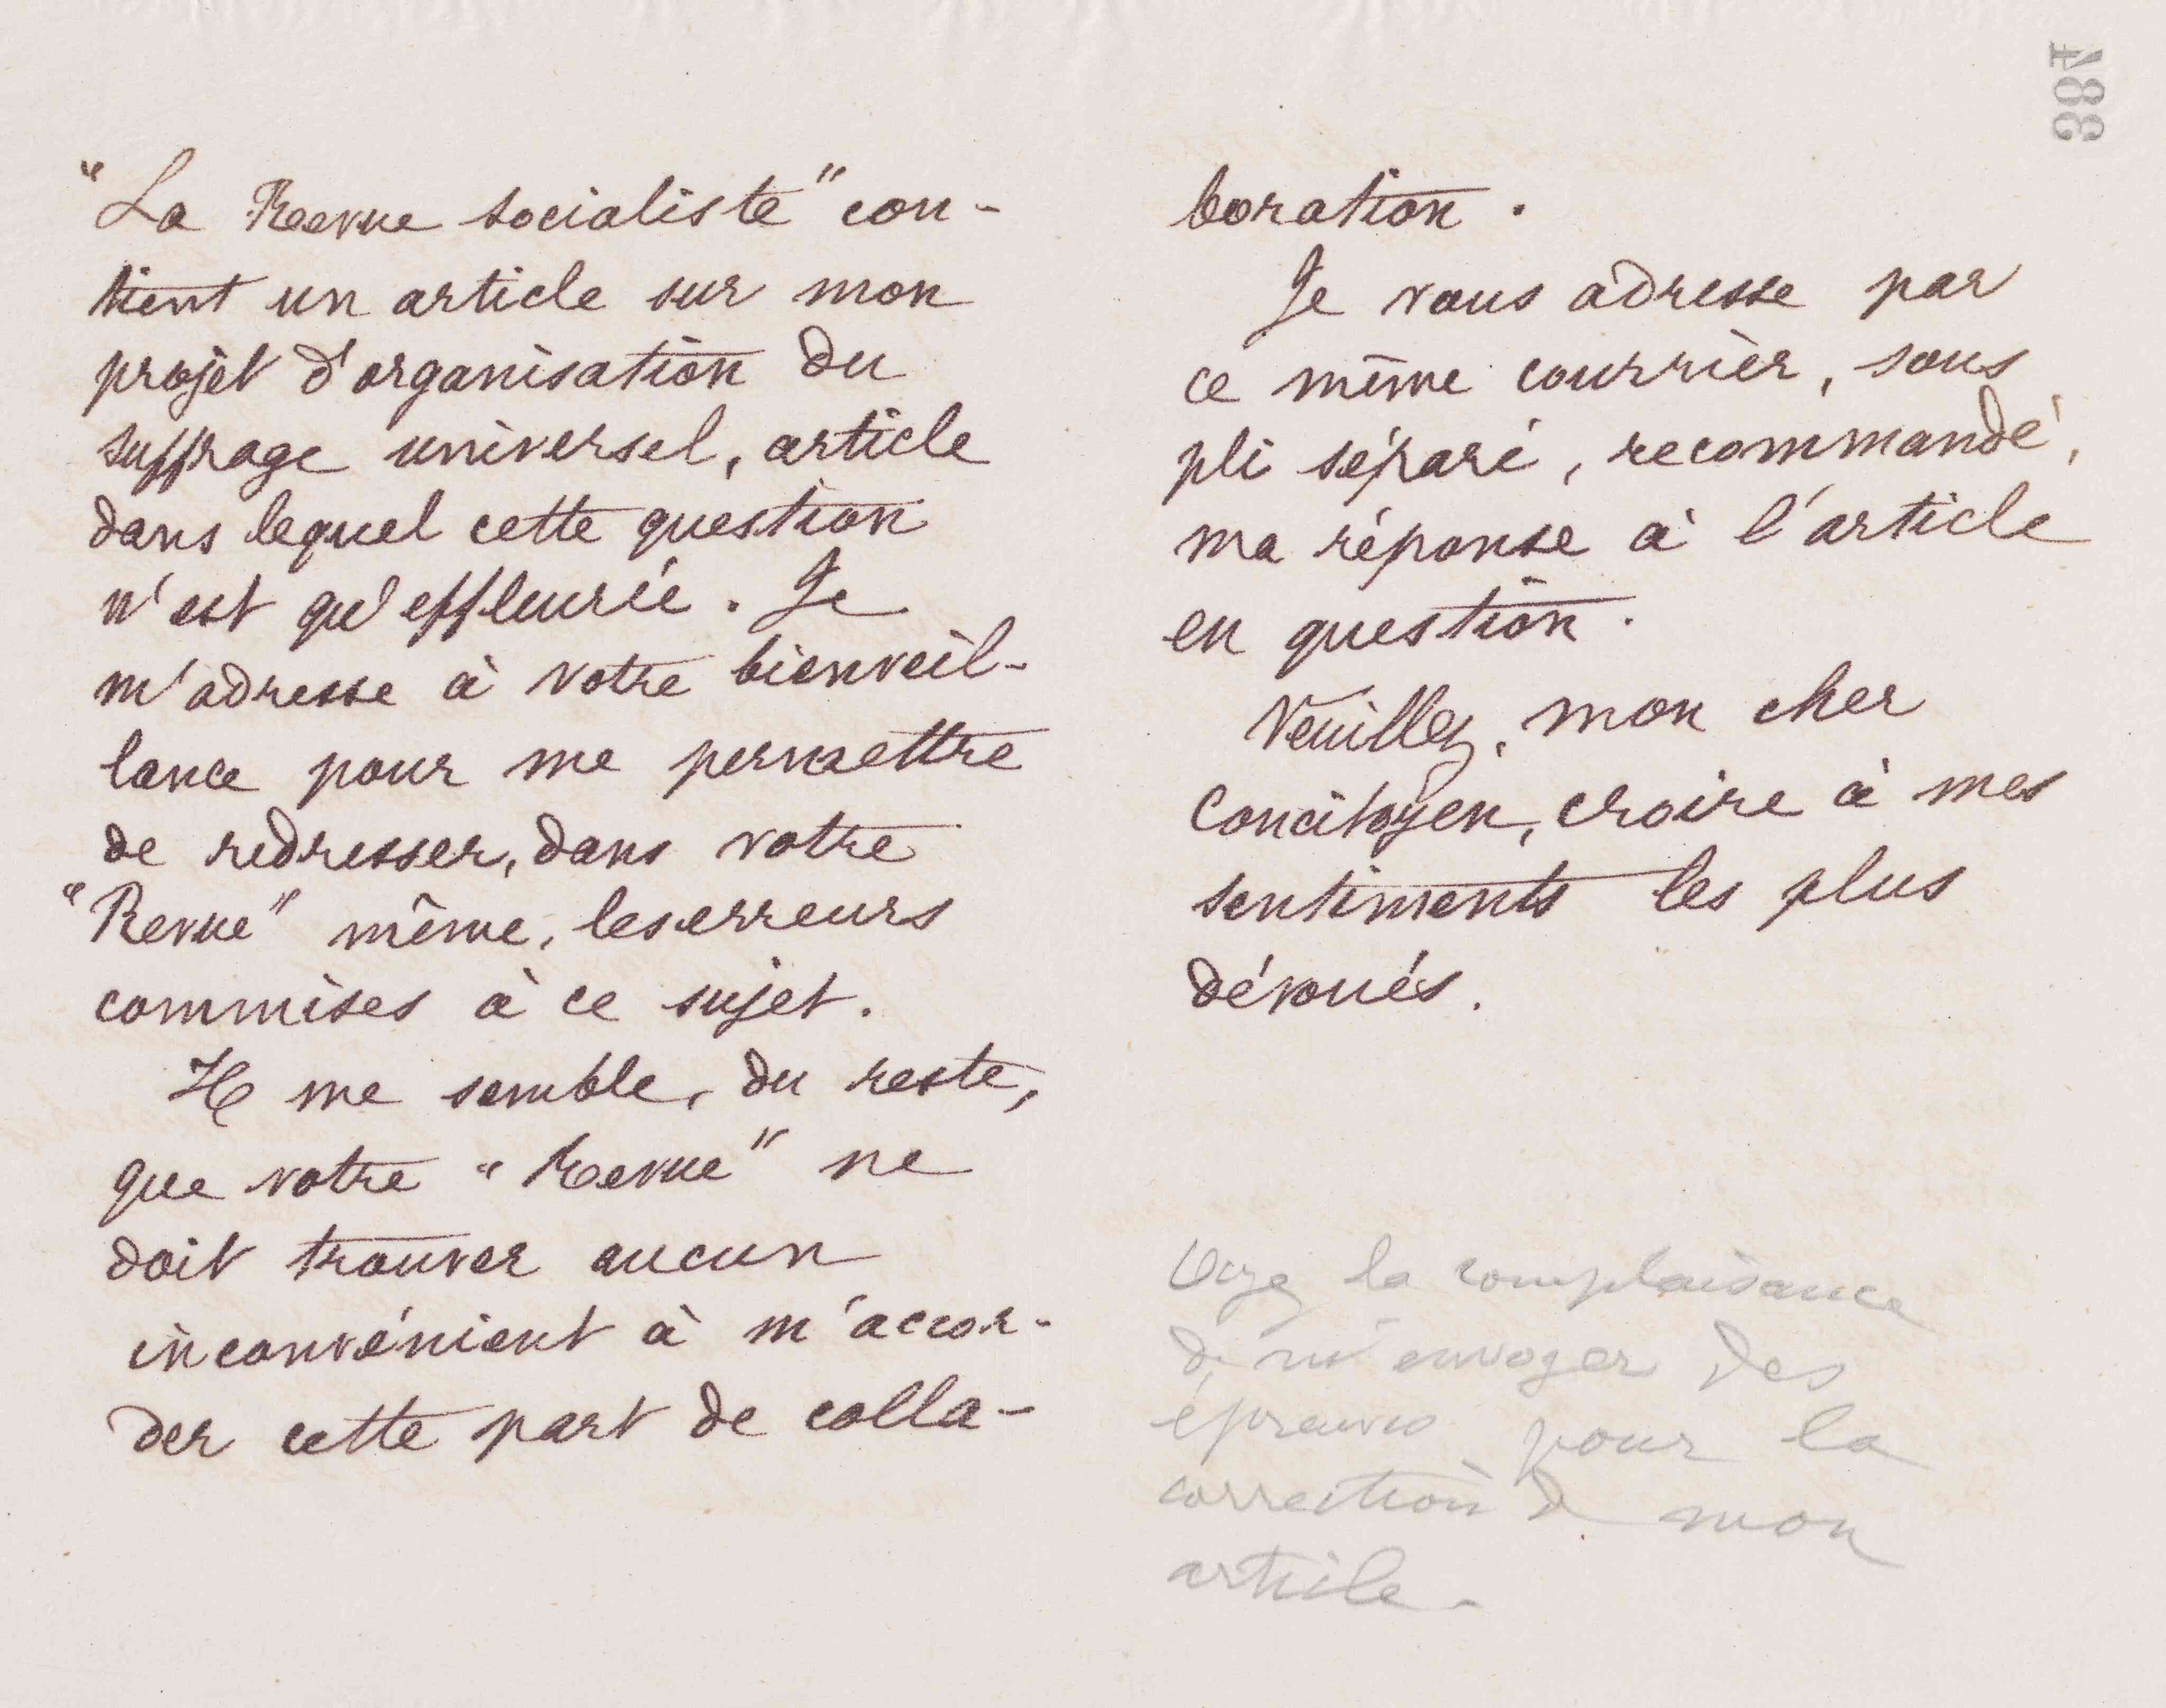 "La Revue socialiste" con-
tient un article sur mon
projet d'organisation du
suffrage universel, article
dans lequel cette question
n'est qu'effleurée. Je
m'adresse à votre bienveil-
lance pour me permettre
de redresser, dans votre
"Revue" même, les erreurs
commises à ce sujet.
Il me semble, du reste,
que votre "Revue" ne
doit trouver aucun
inconvénient à m'accor-
der cette part de colla-
387
boration.
Je vous adresse par
ce même courrier, sous
pli séparé, recommandé,
ma réponse à l'article
en question.
Veuillez, mon cher
concitoyen, croire à mes
sentiments les plus
dévoués.
Ayez la complaisance
de m'envoyer des
épreuves pour la
correction de mon
article.